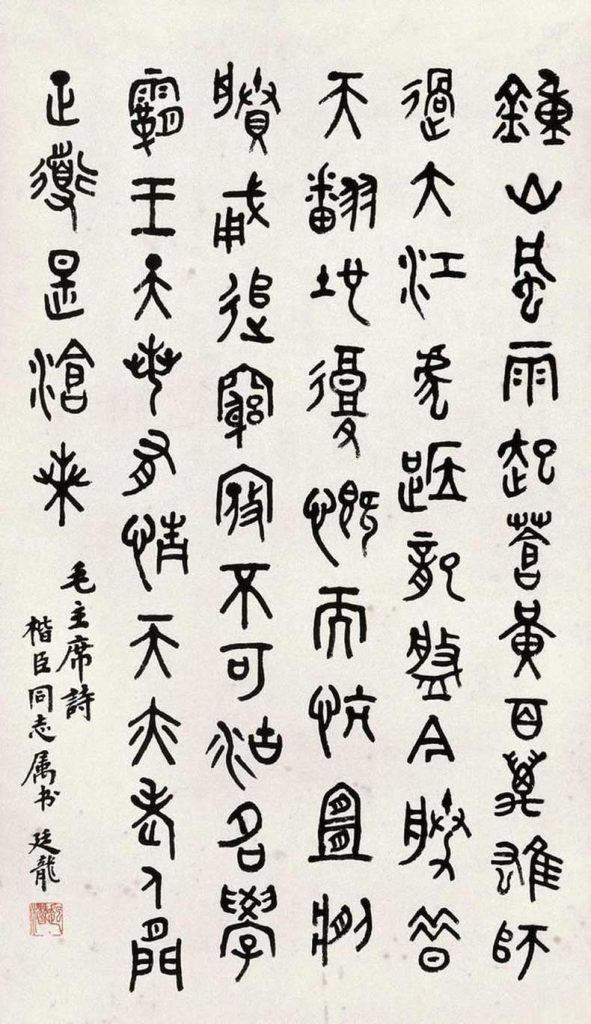 鍾山風雨起蒼黃百萬雄師
過大江虎踞龍盤今勝昔
天翻地覆慨而忼宜將
賸勇追窮寇不可沽名學
霸王天若有情天亦老人間
正道是滄桑
毛主席詩
楷臣同志属书 廷龍